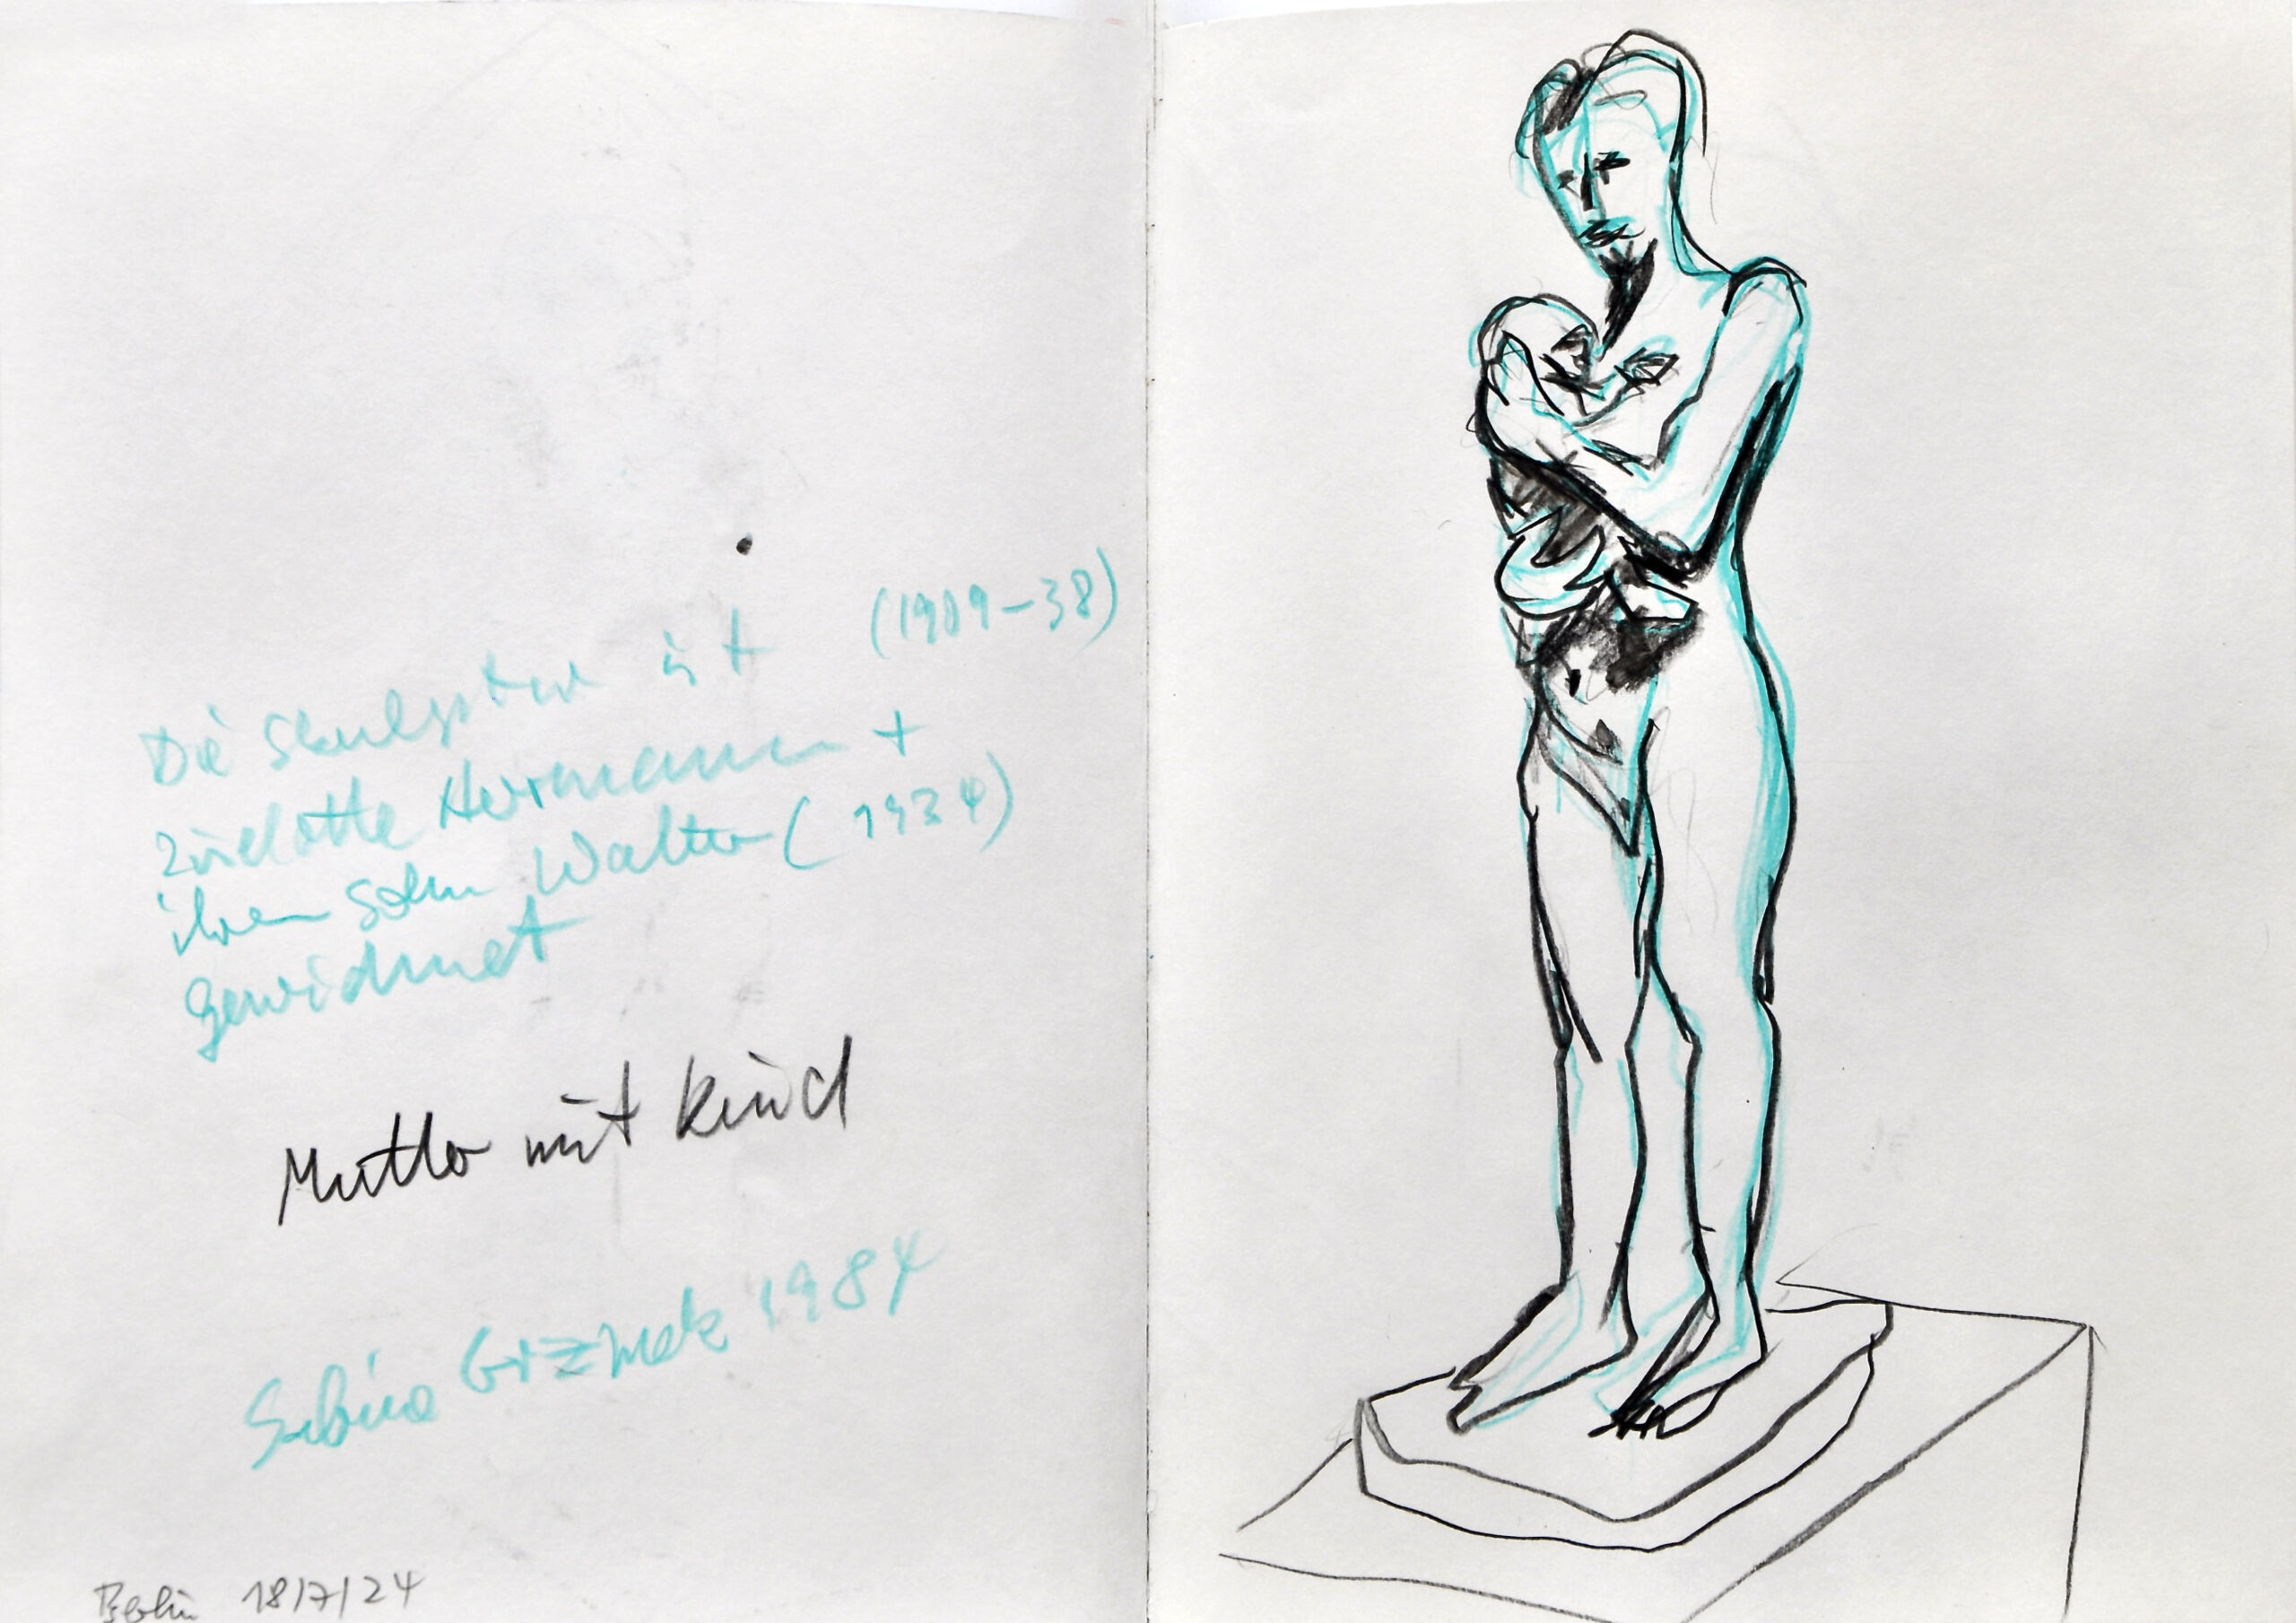 Die Skulptur ist (1909–38)
Liselotte Hermann +
ihrem Sohn Walter (1934)
gewidmet
Mutter mit Kind
Sabina Grzimek 1984
Berlin 18/7/24